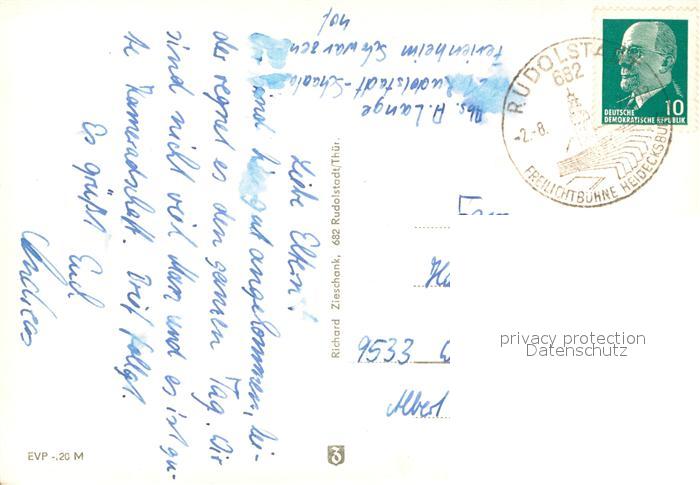 Abs. A. Lange
Rudolstadt-Schaala
Ferienheim Schwarzen
hof
Liebe Eltern!
Wir sind hier gut angekommen, lei-
der regnet es den ganzen Tag. Wir
sind nicht viel Mann und es ist gu-
te Kameradschaft. Brief folgt.
Es grüßt Euch
Andreas
Richard Zieschank, 682 Rudolstadt/Thür.
EVP -,20 M
RUDOLSTA
682
-2.-8.
FREILICHTBÜHNE HEIDECKSBU
10
DEUTSCHE
DEMOKRATISCHE REPUBLIK
9533
Albert
privacy protection
Datenschutz